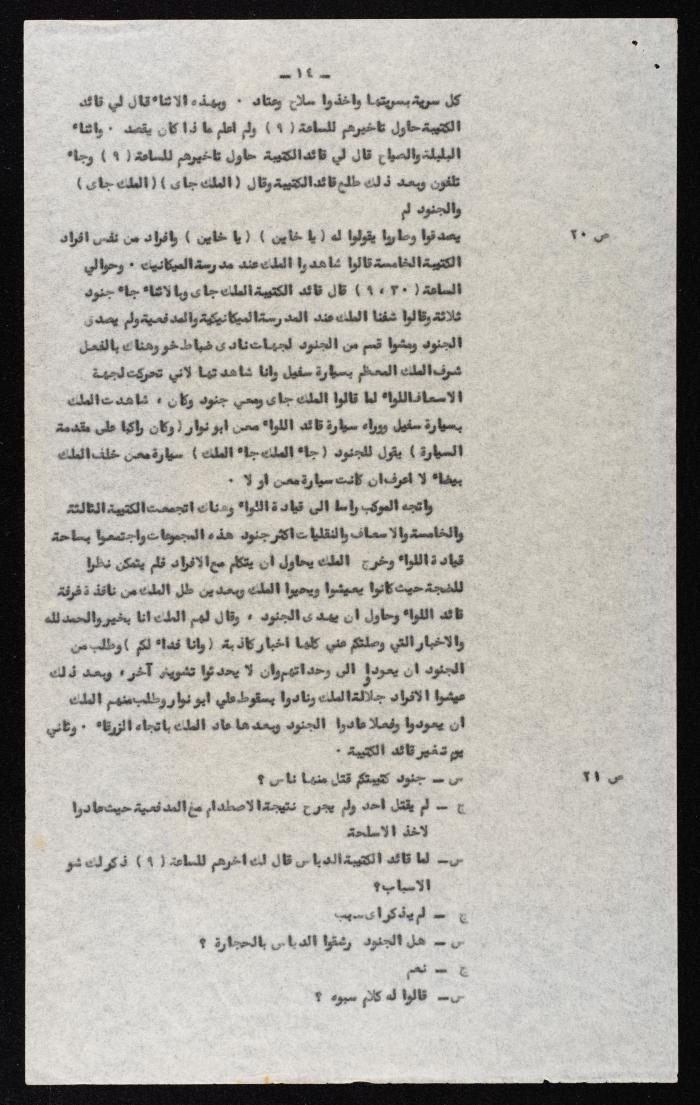 ـ ١٤ ـ
كل سرية بسريتها واخذوا سلاح وعتاد ٠ وبهذه الاثناء قال لي قائد
الكتيبة حاول تاخيرهم للساعة ( ٩ ) ولم اعلم ماذا كان يقصد ٠ واثناء
البلبلة والصياح قال لي قائد الكتيبة حاول تاخيرهم للساعة ( ٩ ) وجاء
تلفون وبعد ذلك طلع قائد الكتيبة وقال ( الملك جاى ) ( الملك جاى )
والجنود لم
ص ٢٠
يصدقوا وصاروا يقولوا له ( يا خاين ) ( يا خاين ) وافراد من نفس افراد
الكتيبة الخامسة قالوا شاهدوا الملك عند مدرسة الميكانيك ٠ وحوالي
الساعة ( ٣٠ ، ٩ ) قال قائد الكتيبة الملك جاى وبالاثناء جاء جنود
ثلاثة وقالوا شفنا الملك عند المدرسة الميكانيكية والمدفعية ولم يصدق
الجنود ومشوا قسم من الجنود لجهات نادى ضباط خو وهناك بالفعل
شرف الملك المعظم بسيارة سفيل وانا شاهدتها لاني تحركت لجهة
الاسعاف اللواء لما قالوا الملك جاى ومعي جنود وكان ، شاهدت الملك
بسيارة سفيل ووراء سيارة قائد اللواء معن ابو نوار ( وكان راكبا على مقدمة
السيارة ) يقول للجنود ( جاء الملك جاء الملك ) سيارة معن خلف الملك
بيضاء لا اعرف ان كانت سيارة معن او لا ٠
واتجه الموكب راسا الى قيادة اللواء وهناك اتجمعت الكتيبة الثالثة
والخامسة والاسعاف والنقليات اكثر جنود هذه المجموعات واجتمعوا بساحة
قيادة اللواء وخرج الملك يحاول ان يتكلم مع الافراد فلم يتمكن نظرا
للضجة حيث كانوا يعيشوا ويحيوا الملك وبعدين طل الملك من نافذة غرفة
قائد اللواء وحاول ان يهدى الجنود ، وقال لهم الملك انا بخير والحمد لله
والاخبار التي وصلتكم عني كلها اخبار كاذبة ( وانا فداء لكم ) وطلب من
الجنود ان يعودوا الى وحداتهم وان لا يحدثوا تشويش آخر ، وبعد ذلك
عيشوا الافراد جلالة الملك ونادوا بسقوط علي ابو نوار وطلب منهم الملك
ان يعودوا وفعلا عادوا الجنود وبعدها عاد الملك باتجاه الزرقاء ٠ وثاني
يوم تغير قائد الكتيبة ٠
ص ٢١
س ـ جنود كتيبتكم قتل منها ناس ؟
ج ـ لم يقتل احد ولم يجرح نتيجة الاصطدام مع المدفعية حيث عادوا
لاخذ الاسلحة
س ـ لما قائد الكتيبة الدباس قال لك اخرهم للساعة ( ٩ ) ذكر لك شو
الاسباب ؟
ج ـ لم يذكر اى سبب
س ـ هل الجنود رشقوا الدباس بالحجارة ؟
ج ـ نعم
س ـ قالوا له كلام سبوه ؟